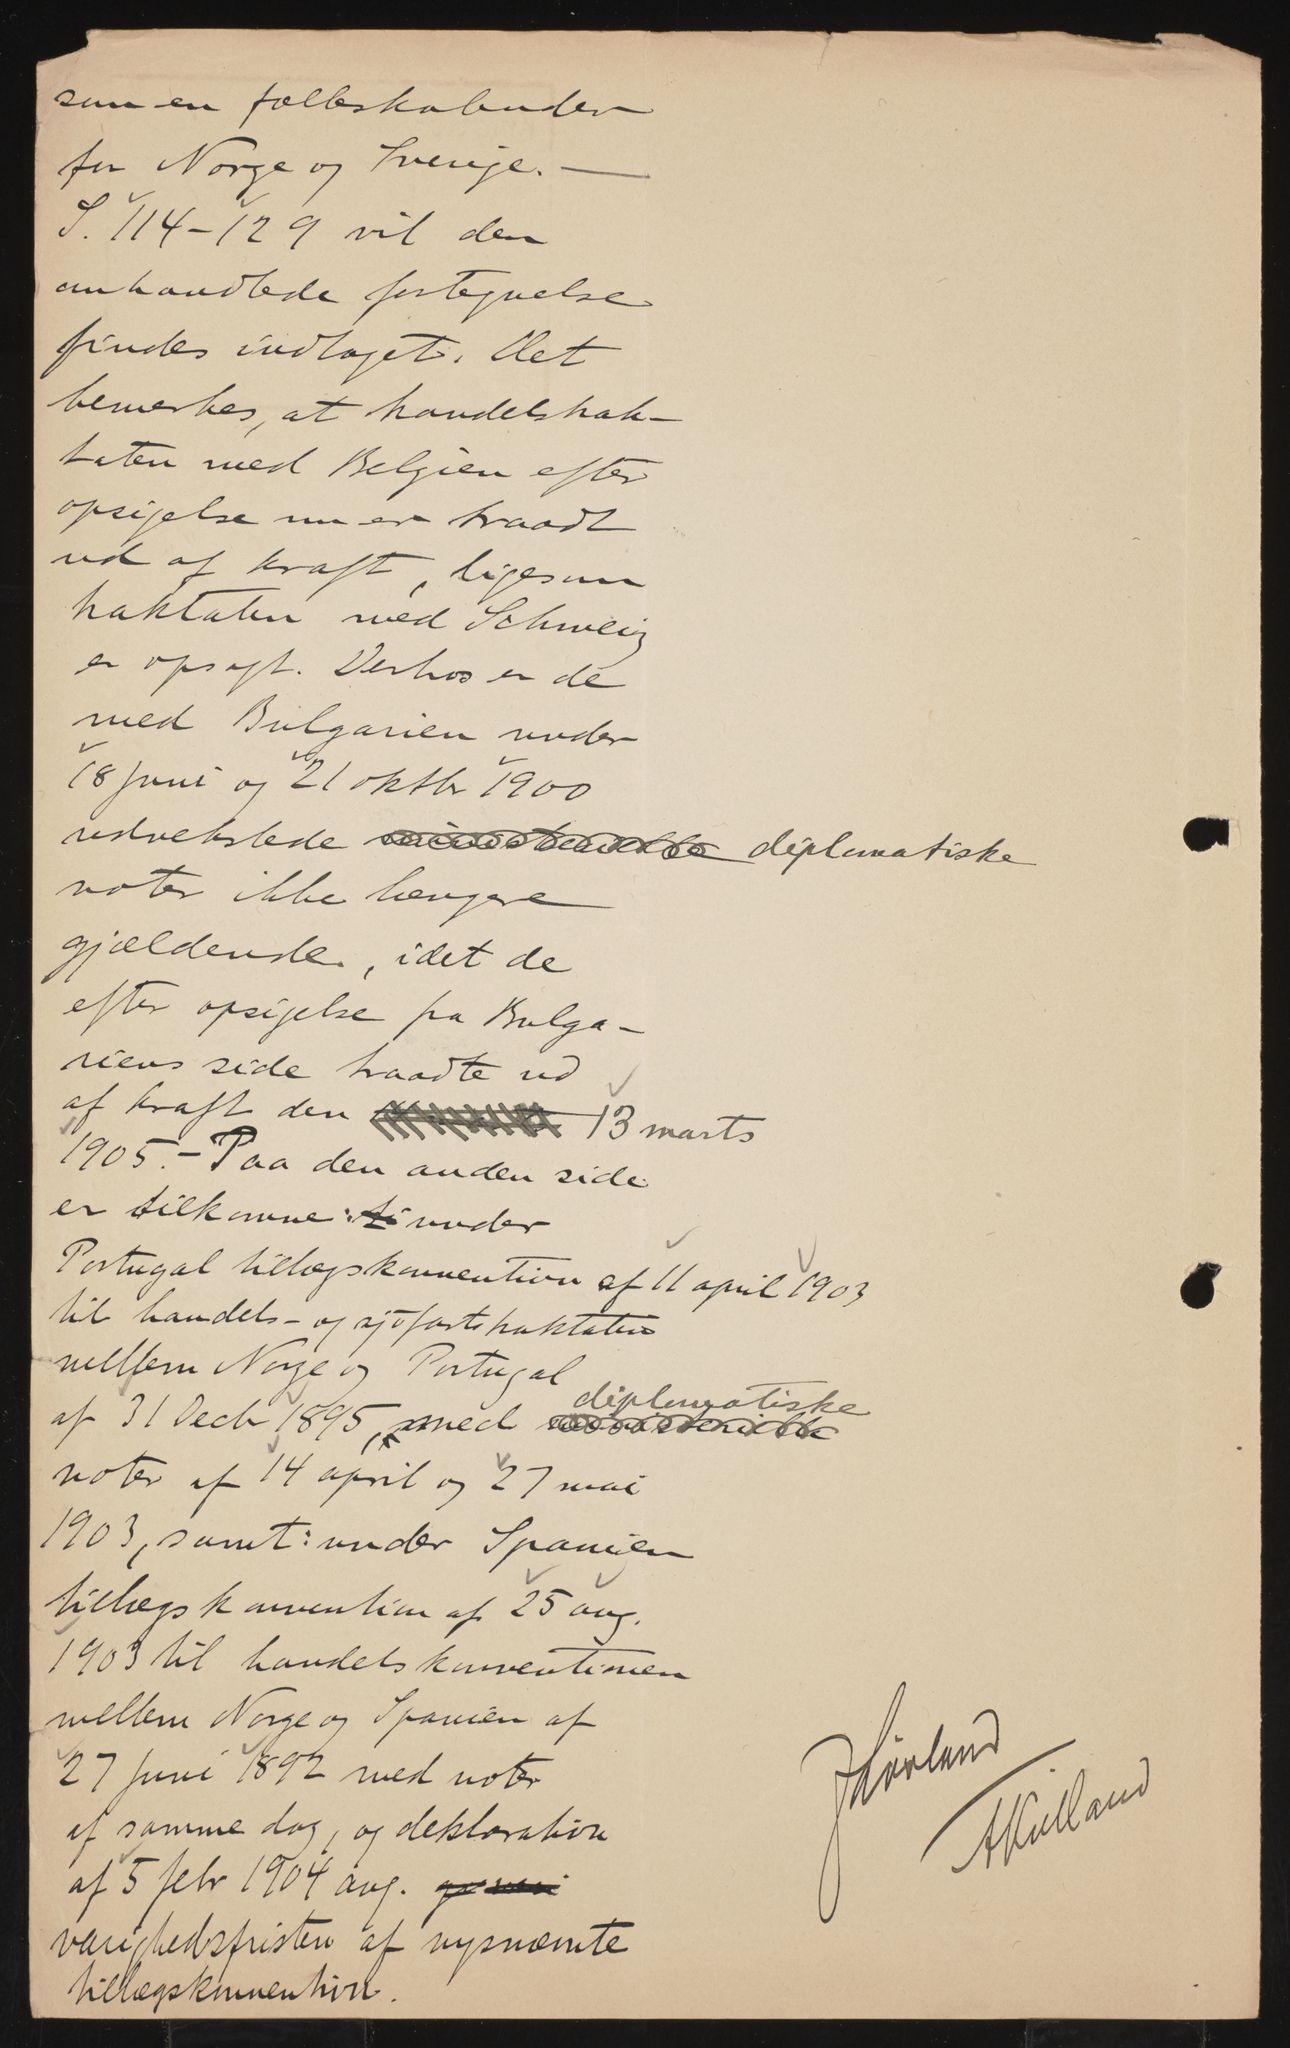 som en fælleskalender
for Norge og Sverige. —
S. 114-129 vil den
omhandlede fortegnelse
findes indtaget. Det
bemerkes, at handelstrak-
taten med Belgien efter
opsigelse nu er traadt
ud af kraft, ligesom
traktaten med Schweiz
er opsagt. Derhos er de
med Bulgarien under
18 juni og 21 oktbr 1900
udvekslede diplomatiske
noter ikke længere
gjældende, idet de
efter opsigelse fra Bulga-
riens side traadte ud
af kraft den 13 marts
1905. - Paa den anden side
er tilkomne: under
Portugal tillægskonvention af 11 april 1903
til handels- og sjøfartstraktaten
mellem Norge og Portugal
af 31 Decb 1895, med diplomatiske
noter af 14 april og 27 mai
1903, samt: under Spanien
tillægskonvention af 25 aug.
1903 til handelskonventionen
mellem Norge og Spanien af
27 juni 1892 med noter
af samme dag, og deklaration
af 5 febr 1904 ang.
varighedsfristen af nysnævnte
tillægskonvention.
JHovland